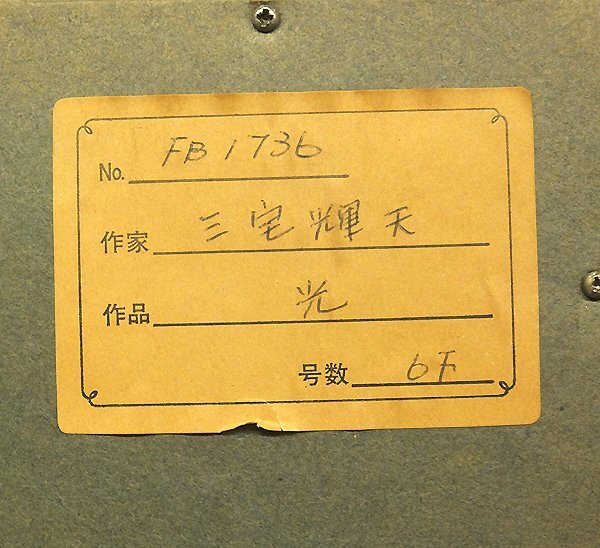 No. FB1736
作家 三宅輝天
作品 光
号数 6F